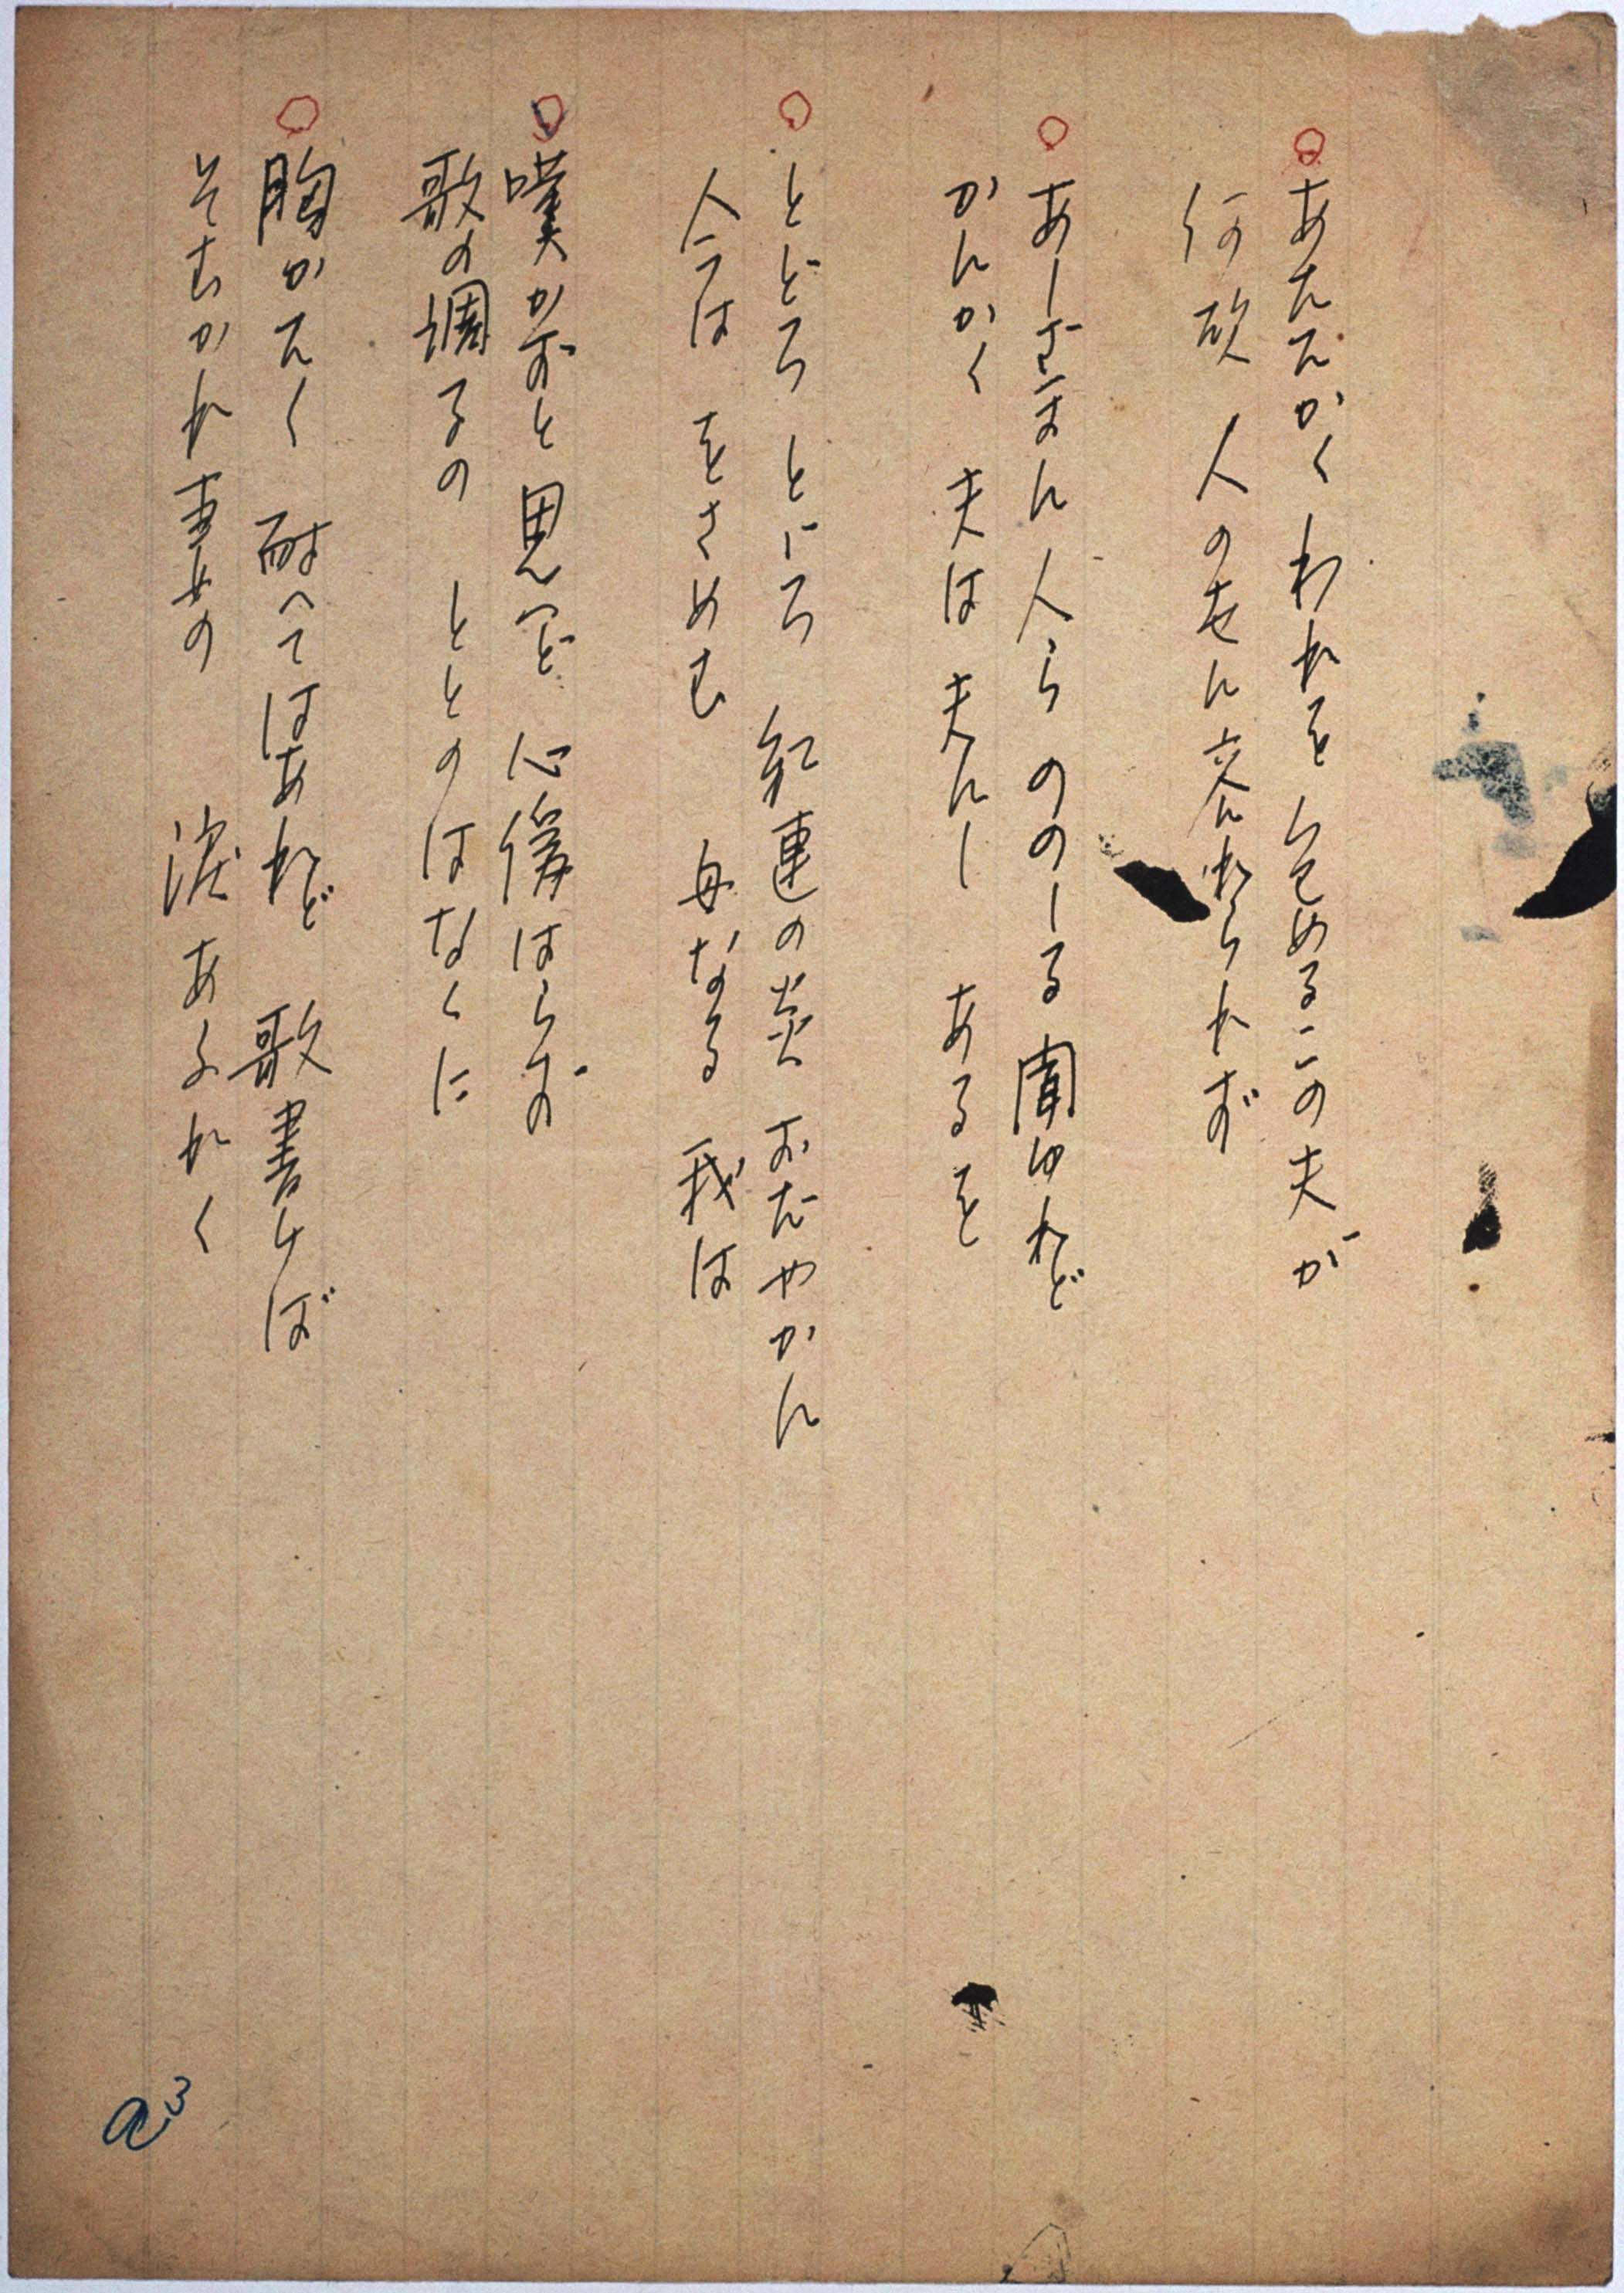 あたたかく われを包めるこの夫が
何故 人の世に容れられず
あしざまに人らののしる聞ゆれど
かにかく 夫は夫にし あるを
とどろ とどろ 紅蓮の炎 おだやかに
今は をさめむ 母なる 我は
嘆かずと思へど 心 はらず
歌の調るの ととのはなくに
胸かたく 耐へてはあれど 歌書けば
そむかれ妻の 涙あふれく
a3